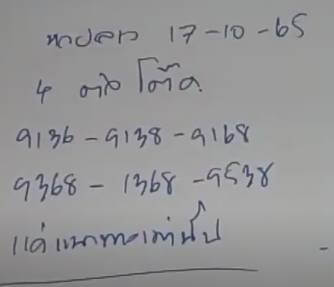 หาปลาว 17-10-65
4 ตัว โต๊ด
9136 - 9138 - 9168
9368 - 1368 - 9538
แค่แนวทางเท่านั้น